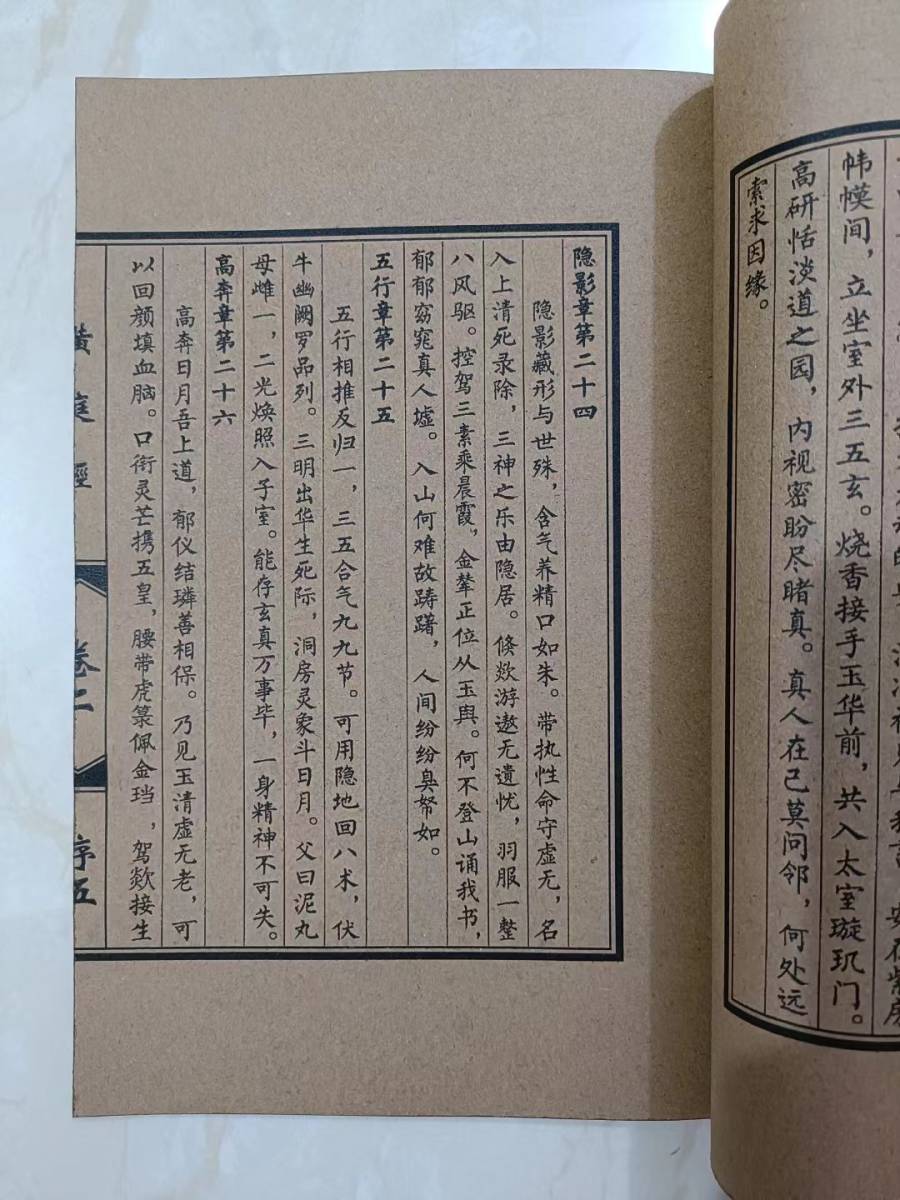 安在紫房
帏幙间，立坐室外三五玄。烧香接手玉华前，共入太室璇玑门。
高研恬淡道之园，内视密盼尽睹真。真人在己莫问邻，何处远
索求因缘。
隐影章第二十四
隐影藏形与世殊，含气养精口如朱。带执性命守虚无，名
入上清死录除，三神之乐由隐居。倏欻游遨无遗忧，羽服一整
八风驱。控驾三素乘晨霞，金辇正位从玉舆。何不登山诵我书，
郁郁窈窕真人墟。入山何难故踌躇，人间纷纷臭帑如。
五行章第二十五
五行相推反归一，三五合气九九节。可用隐地回八术，伏
牛幽阙罗品列。三明出华生死际，洞房灵象斗日月。父曰泥丸
母雌一，二光焕照入子室。能存玄真万事毕，一身精神不可失。
高奔章第二十六
高奔日月吾上道，郁仪结璘善相保。乃见玉清虚无老，可
以回颜填血脑。口衔灵芒携五皇，腰带虎箓佩金珰，驾欻接生
黄庭經
卷二
序五